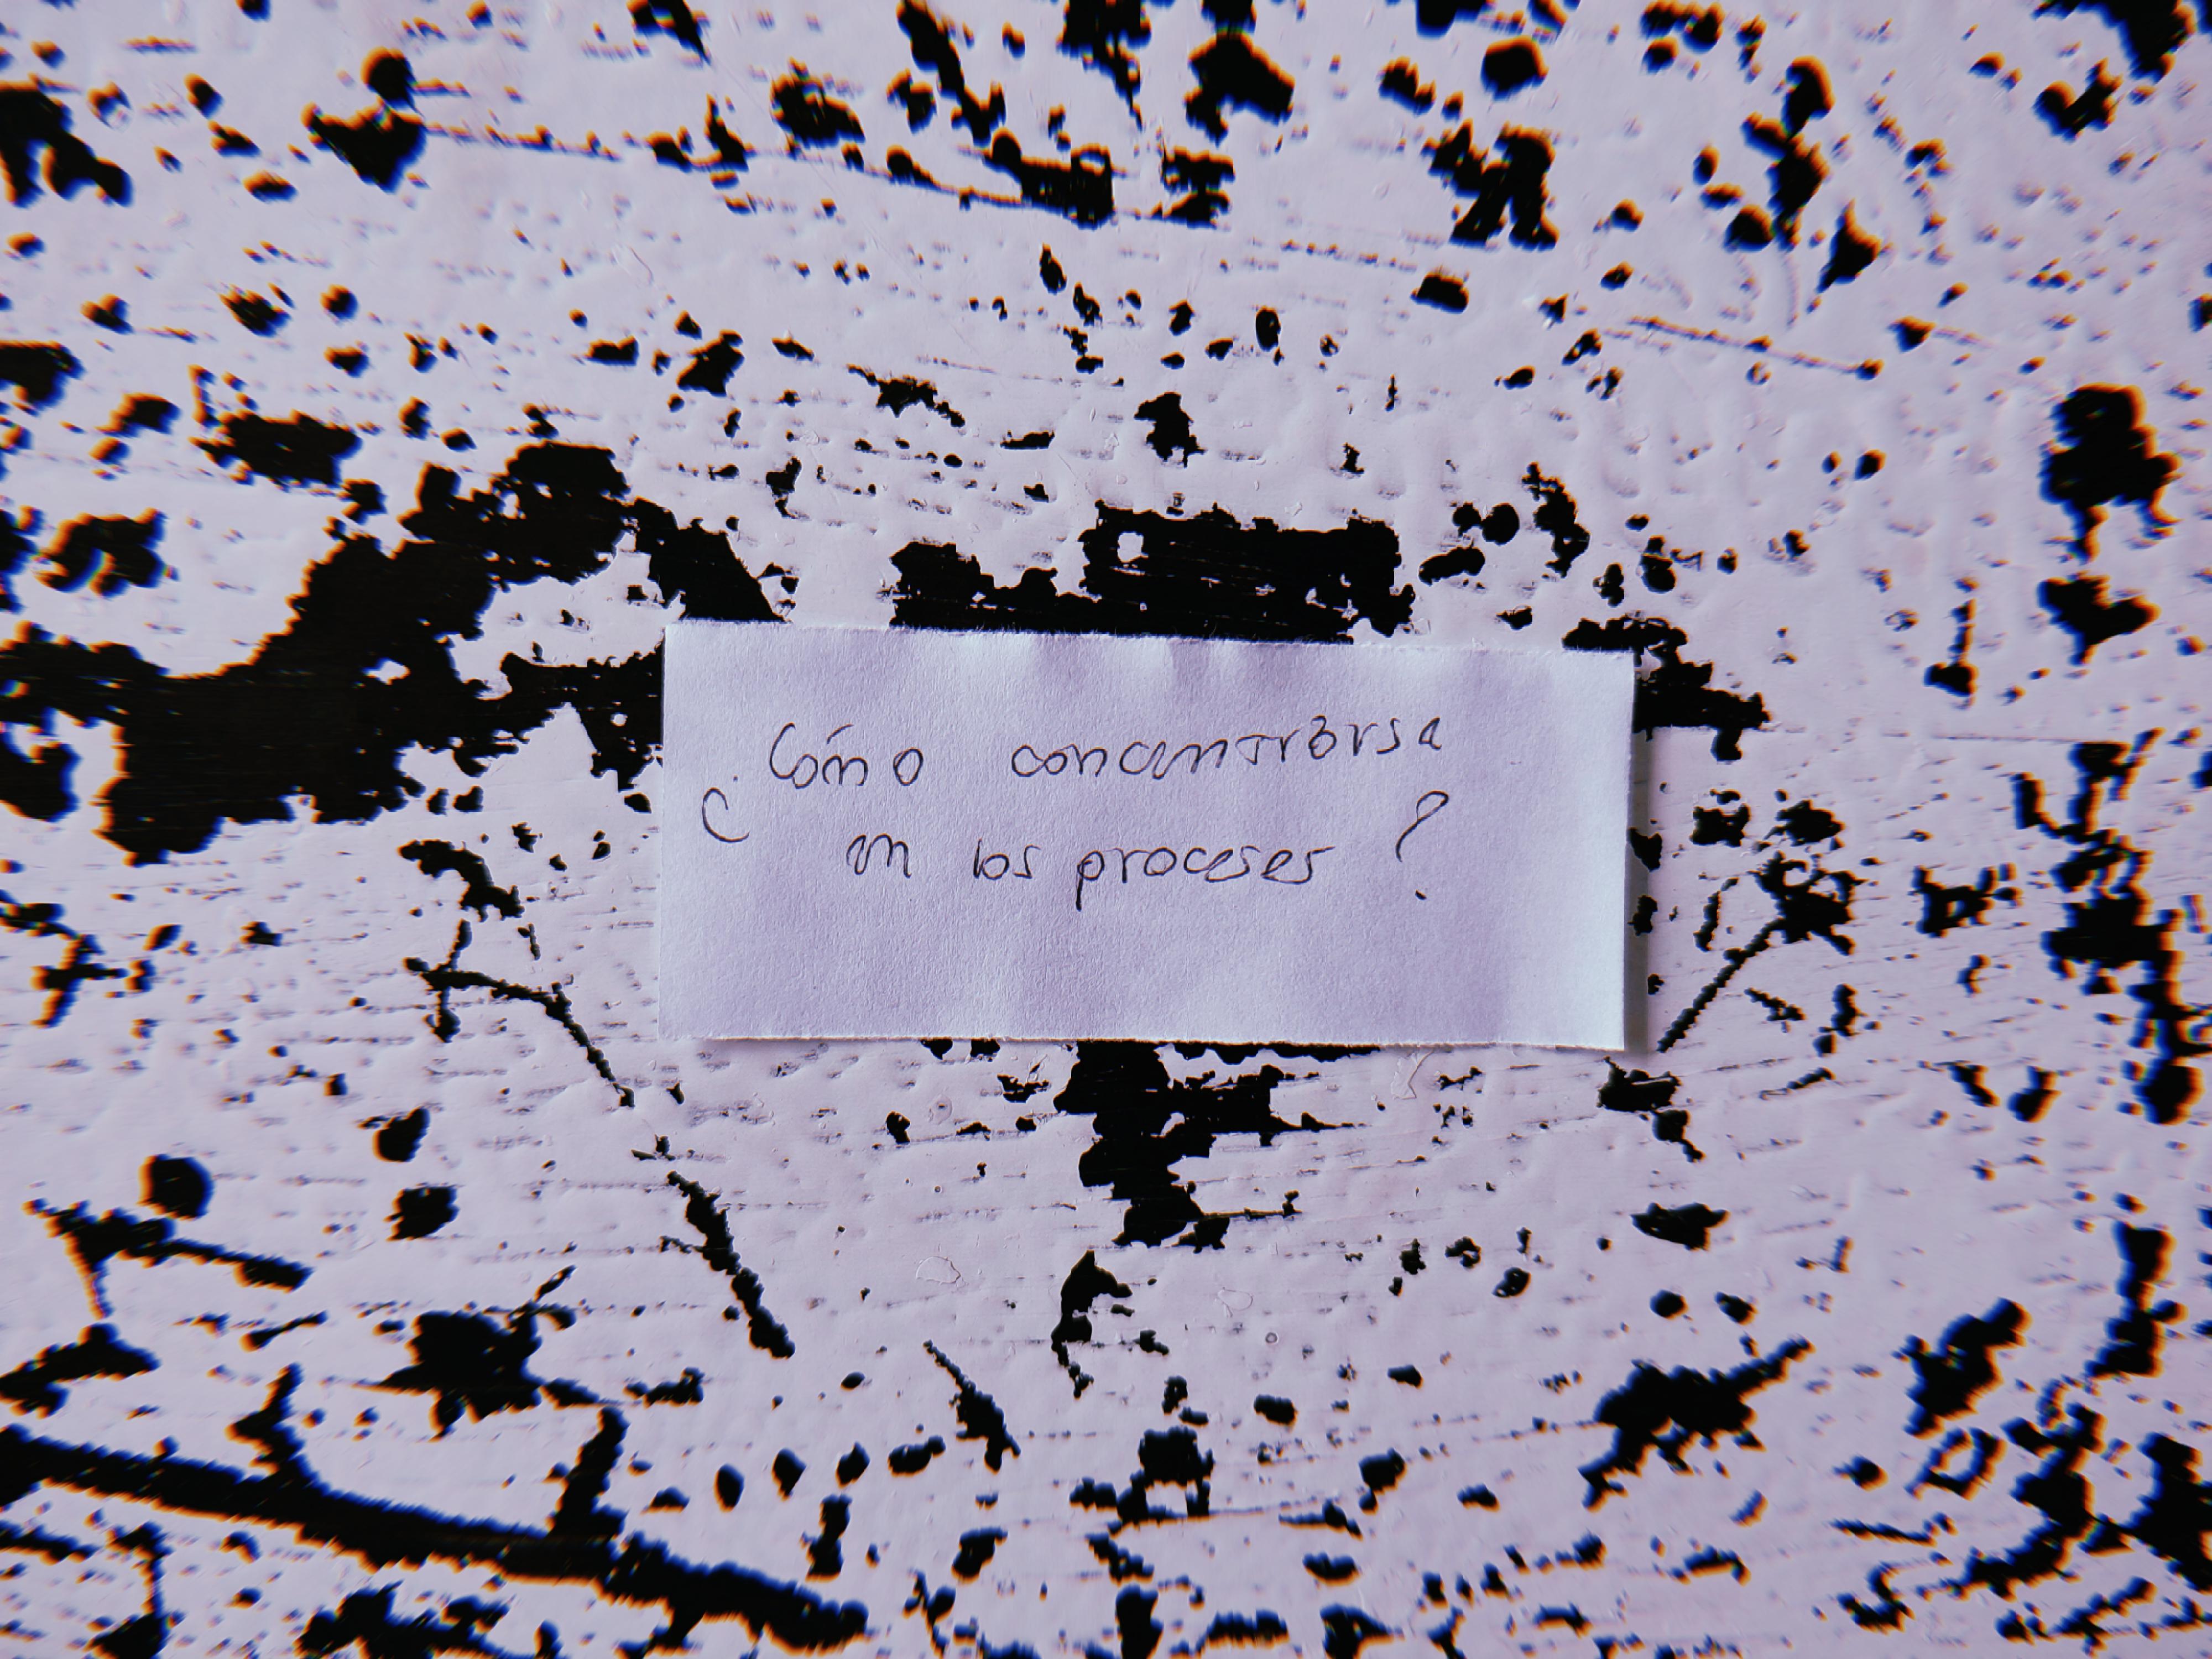 ¿Cómo concentrarse
en los proceses?